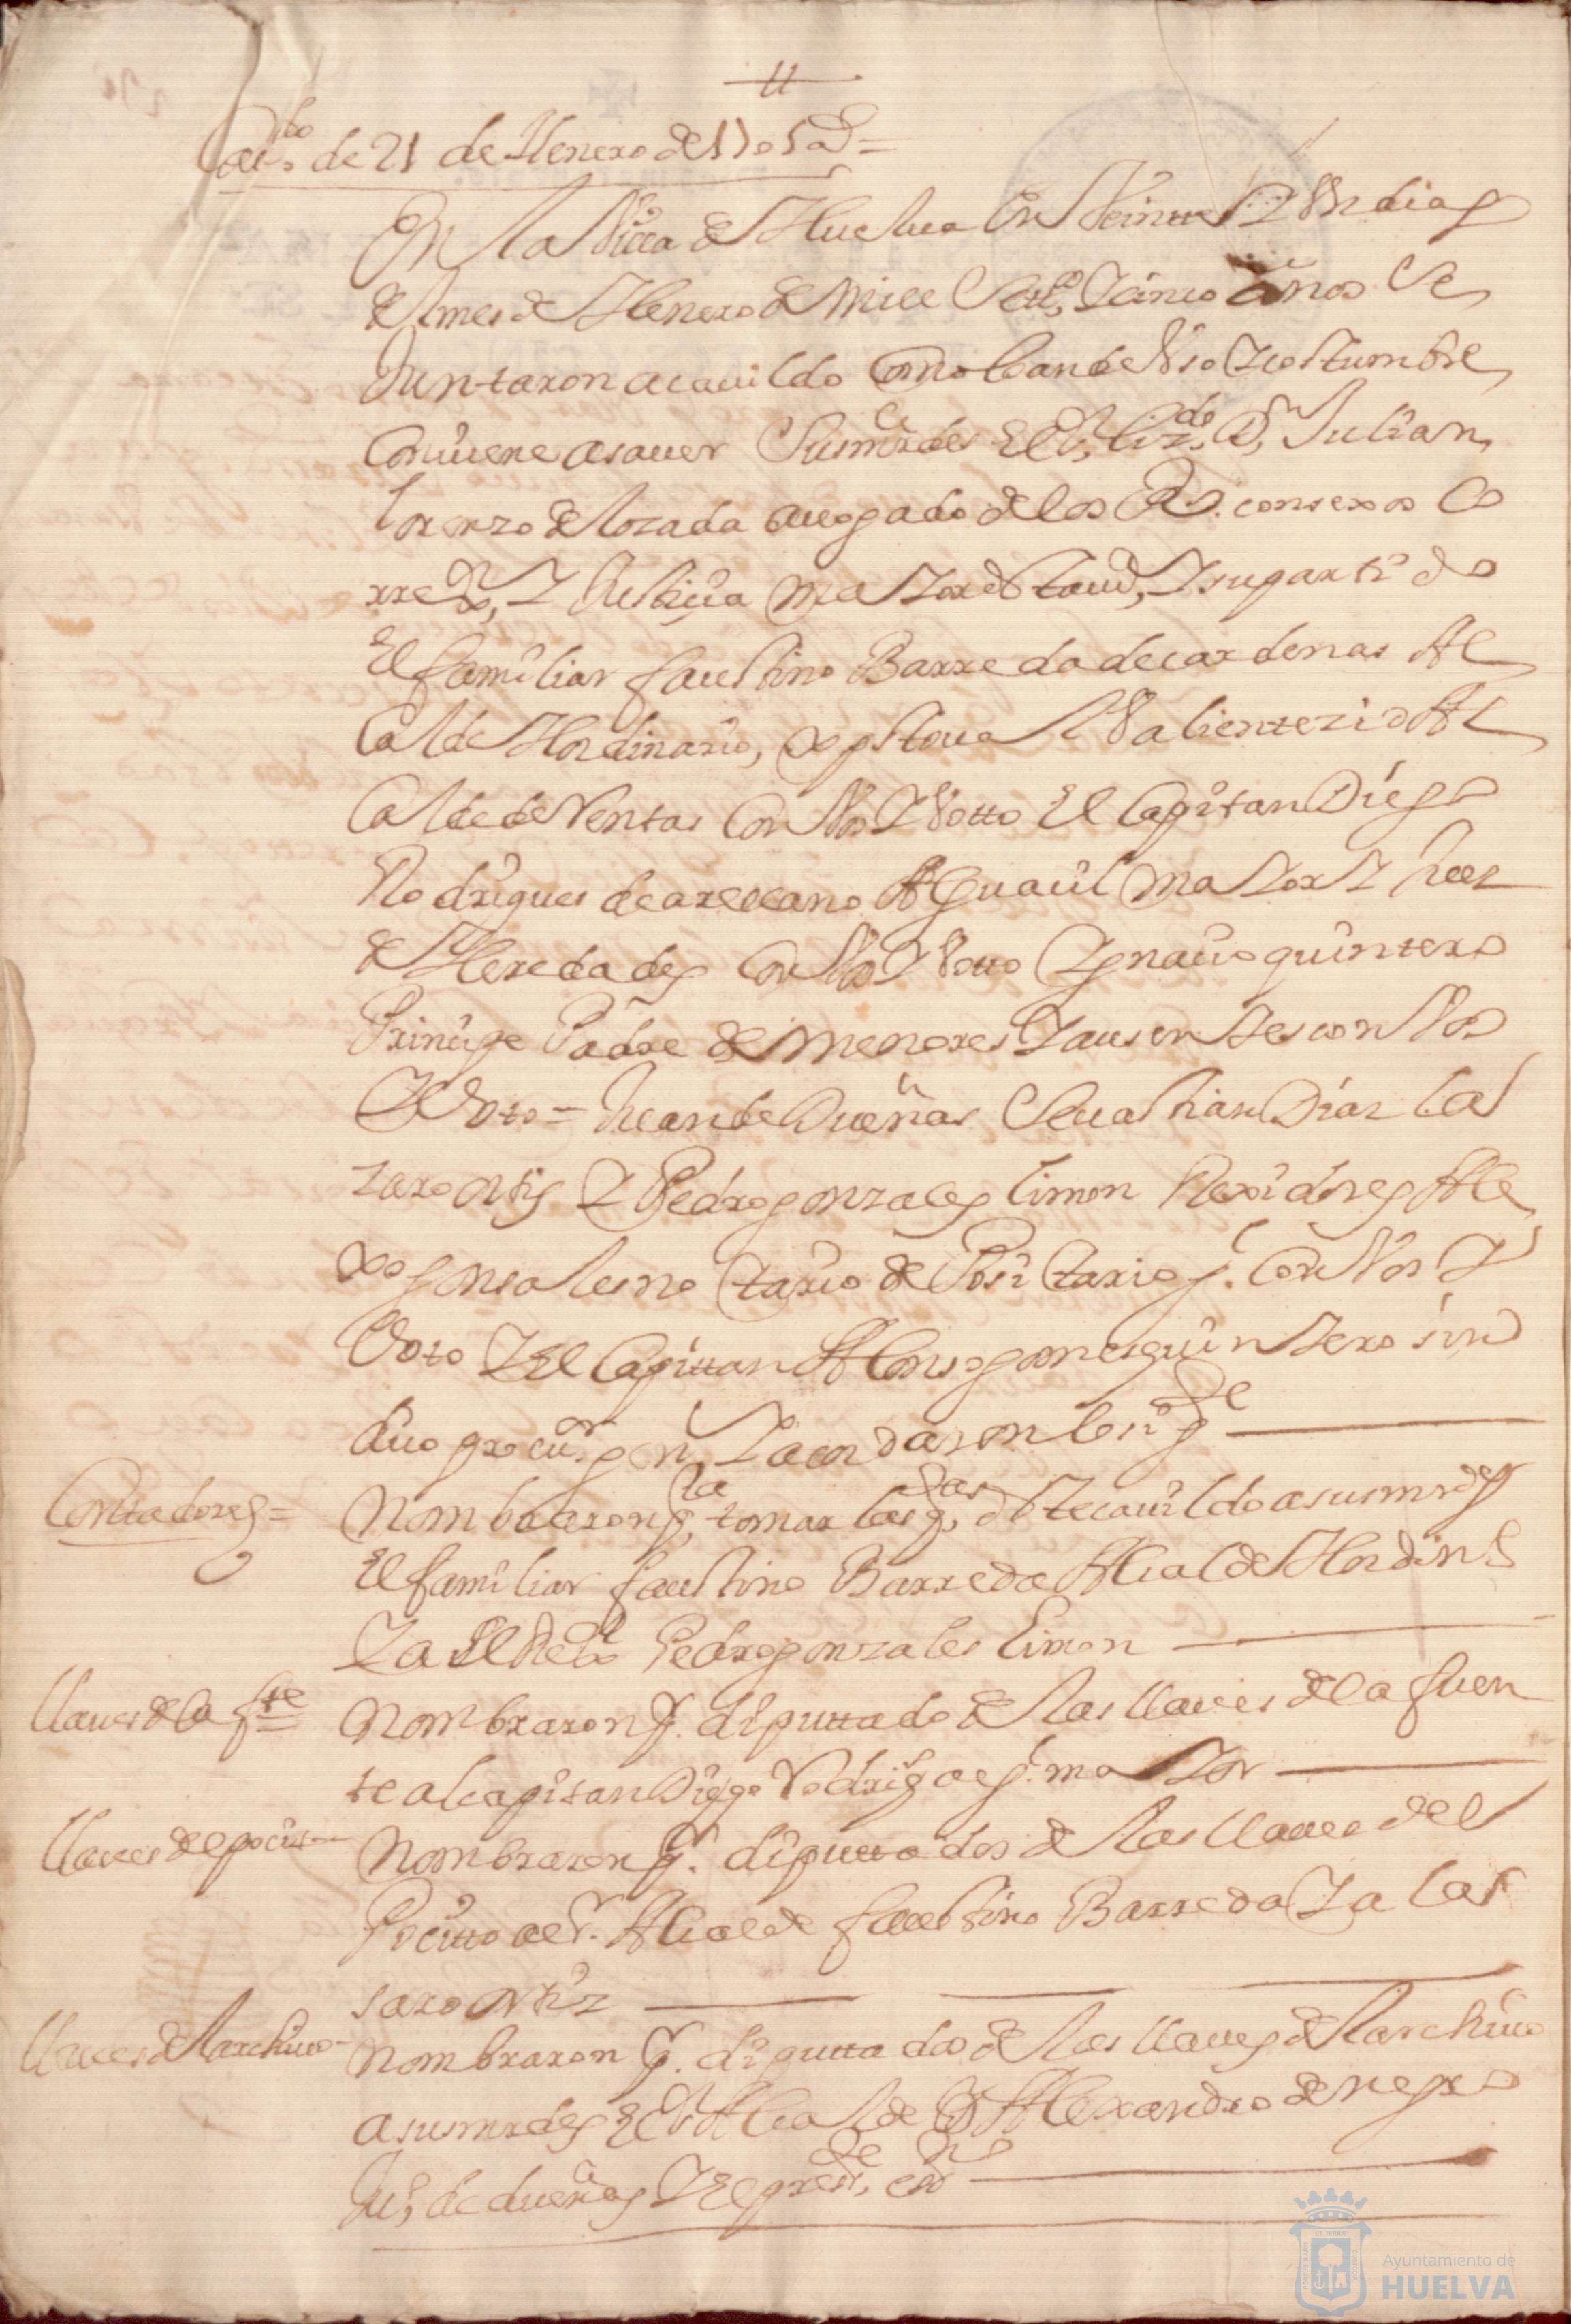 Cavdo de 21 de Henero de 1705 as =
En la Villa de Huelua En Veinte Y Vn dias
del mes de Henero de mill Settos Y cinco años Se
Juntaron a cauildo Como lo an de Vso Y costumbre
Conuiene a sauer Sus mrdes El Sr Lizdo D. Julian
lorenzo de lozada auogado de los Rs. consexos Co
rrexor Y Justicia Mayor desta Va Y su partido
El familiar faustino Barreda de cardenas Al
Calde Hordinario, xpstoual Valiente zid Al
Calde de Ventas Con Vos Y Votto El Capitan Diego
Rodrigues de arellano Alguacil Mayor Y Juez
de Heredades Con Vos Y Votto Ygnacio quintero
Principe Padre de Menores Y ausentes con Vos
Y Voto = Juan de Dueñas Seuastian Diaz La
zaro Ortis Y Pedro gonzales Limon Rexidores Ale
xo gonsales no Ctario de Posi Ctarios. Con Vos Y
Voto Y El Capittan Alonso gomes quintero sin
dico procur. gen Y acordaron lo sigte
Contadores =
Nombraron pa tomar las qtas deste cauildo a sus mrdes
El familiar faustino Barreda Alcalde Hordino
Y a El Rexor Pedro gonzales Limon
llaues de la fte
Nombraron pr. diputtado de las llaues de la fuen
te al capitan Diego Rodrigs alg. mayor
llaues del pocito
Nombraron pr. diputtados de las llaues del
Pocitto al Sr. Alcalde faustino Barreda Y a la
saro Ortiz
llaues del archiuo
Nombraron pr. diputtados de las llaues del archiuo
a sus mrdes El Sr Alcalde D Alexandro de negro
Jun de dueñas Y El preste esno
Ayuntamiento de
HUELVA